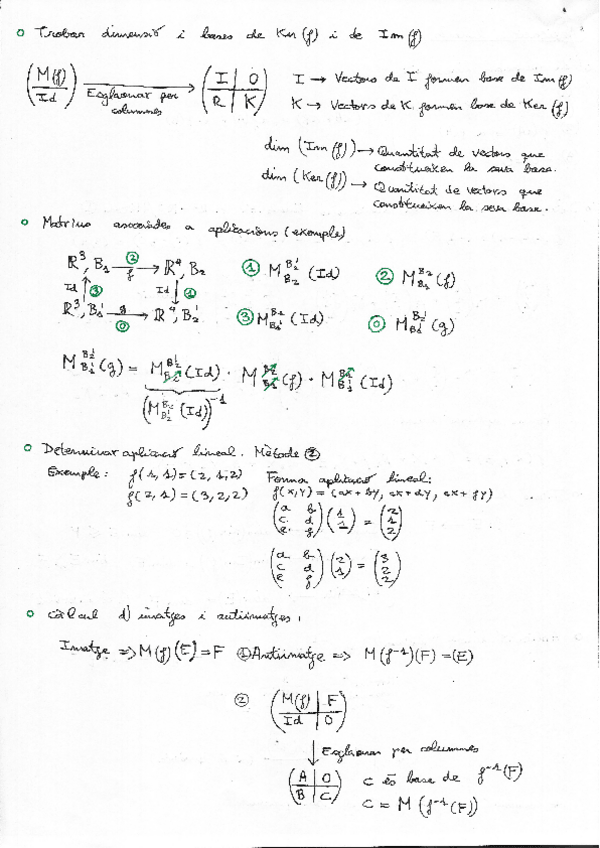 Trobar dimensió i bases de Ker(f) i de Im(f)
(M(f) / Id) Esglaonar per columnes → (I | O / R | K)
I → Vectors de I formen base de Im(f)
K → Vectors de K formen base de Ker(f)
dim (Im(f)) → Quantitat de vectors que constitueixen la seva base.
dim (Ker(f)) → Quantitat de vectors que constitueixen la seva base.
Matrius associades a aplicacions (exemple)
ℝ³, B₁ —f→ ℝ⁴, B₂ ②
Id ↑ ③ Id ↓ ①
ℝ³, B₁' —g→ ℝ⁴, B₂' ⓪
① M^{B₂'}_{B₂} (Id) ② M^{B₂}_{B₁} (f)
③ M^{B₁}_{B₁'} (Id) ⓪ M^{B₂'}_{B₁'} (g)
M^{B₂'}_{B₁'} (g) = M^{B₂'}_{B₂} (Id) · M^{B₂}_{B₁} (f) · M^{B₁}_{B₁'} (Id)
(M^{B₂}_{B₂'} (Id))⁻¹
Determinar aplicació lineal. Mètode ②
Exemple: f(1,1)=(2,1,2) Forma aplicació lineal:
f(2,1)=(3,2,2) f(x,y)=(ax+by, cx+dy, ex+fy)
(a b / c d / e f) (1 / 1) = (2 / 1 / 2)
(a b / c d / e f) (2 / 1) = (3 / 2 / 2)
Càlcul d'imatges i antiimatges:
Imatge => M(f)(E)=F ① Antiimatge => M(f⁻¹)(F)=(E)
② (M(f) | F / Id | O)
↓ Esglaonar per columnes
(A | O / B | C) C és base de f⁻¹(F)
C = M(f⁻¹(F))